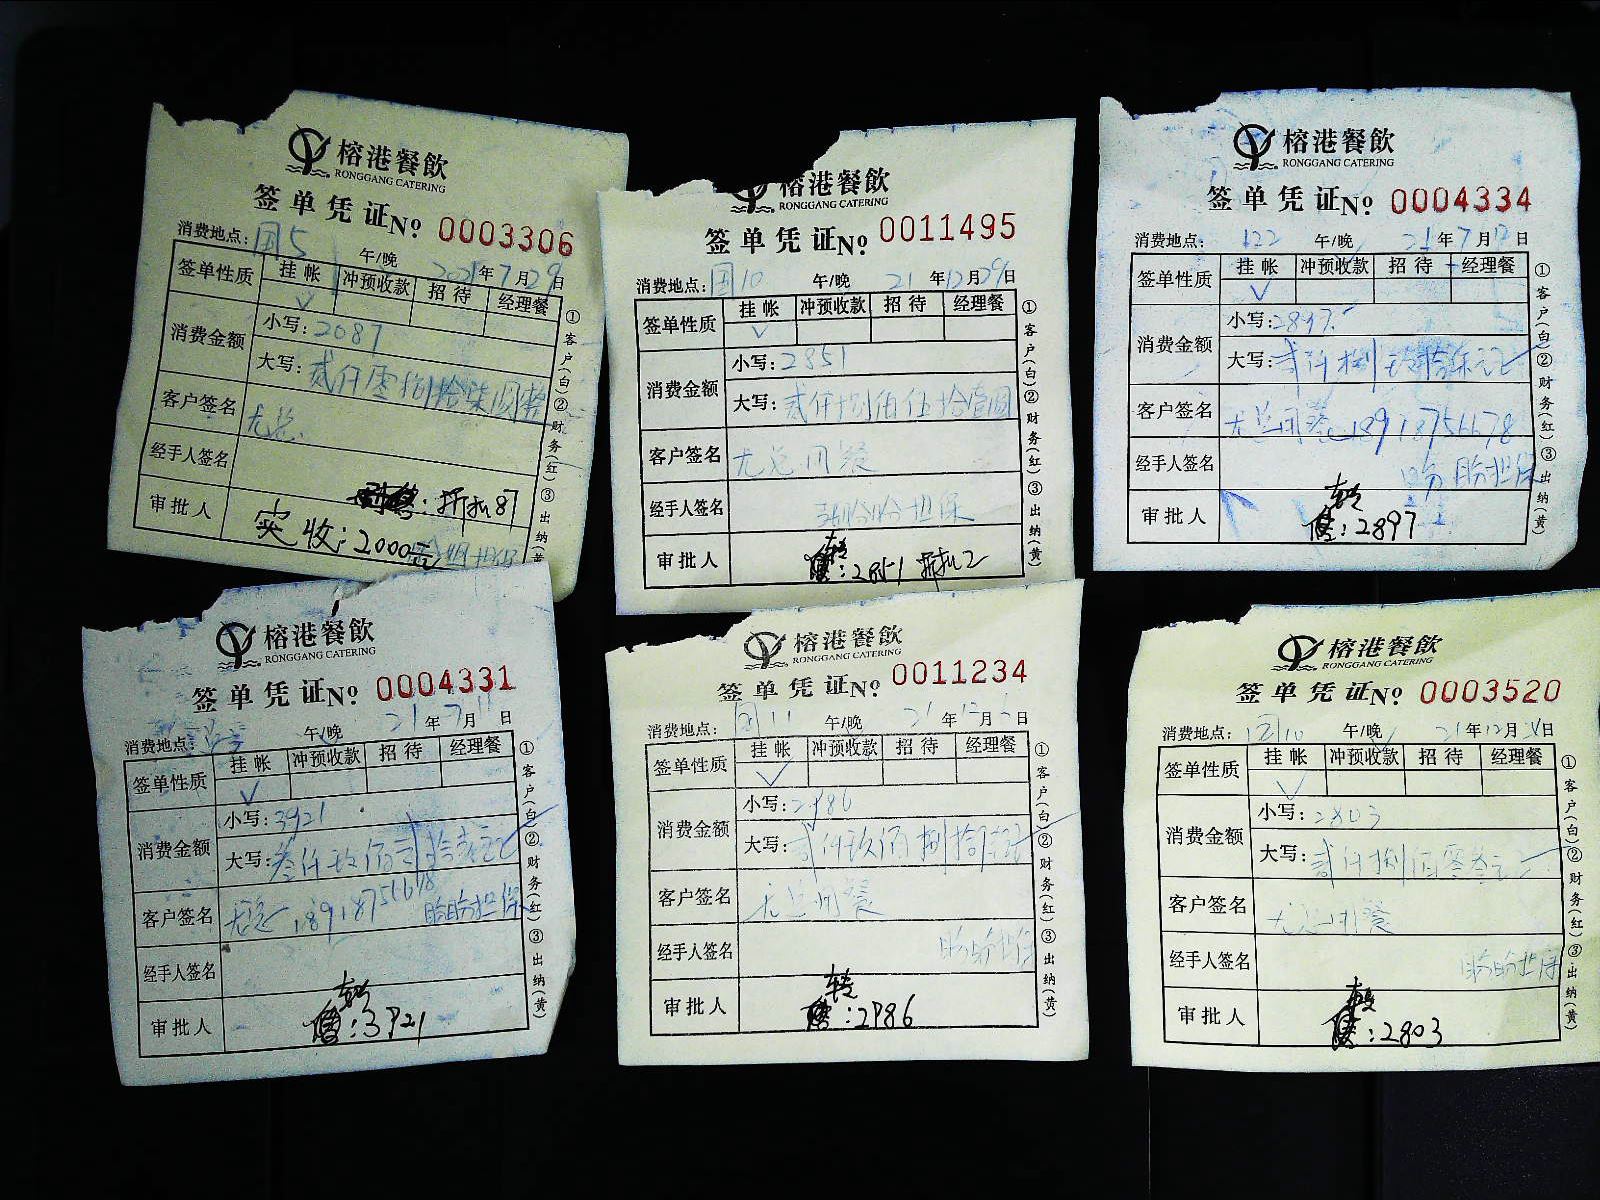 榕港餐飲
RONGGANG CATERING
签单凭证№ 0003306
消费地点: 国5 午/晚 2021年7月29日
签单性质 挂帐 冲预收款 招待 经理餐
✓
消费金额 小写: 2087
大写: 贰仟零捌拾柒圆整
客户签名 尤总
经手人签名
折扣87
审批人 实收: 2000元
①客户(白)②财务(红)③出纳(黄)
榕港餐飲
RONGGANG CATERING
签单凭证№ 0011495
消费地点: 国10 午/晚 21年12月29日
签单性质 挂帐 冲预收款 招待 经理餐
✓
消费金额 小写: 2851
大写: 贰仟捌佰伍拾壹圆
客户签名 尤总用餐
经手人签名 担保
转
审批人 : 2851 折扣2
①客户(白)②财务(红)③出纳(黄)
榕港餐飲
RONGGANG CATERING
签单凭证№ 0004334
消费地点: 122 午/晚 21年7月日
签单性质 挂帐 冲预收款 招待 经理餐
✓
消费金额 小写: 2897
大写: 贰仟捌玖拾柒元
客户签名 尤总用餐 18918756678
经手人签名 盼盼担保
转
审批人 : 2897
①客户(白)②财务(红)③出纳(黄)
榕港餐飲
RONGGANG CATERING
签单凭证№ 0004331
消费地点: 午/晚 21年7月11日
签单性质 挂帐 冲预收款 招待 经理餐
✓
消费金额 小写: 3921
大写: 叁仟玖佰贰拾壹元
客户签名 尤总 18918756678 盼盼担保
经手人签名
转
审批人 : 3921
①客户(白)②财务(红)③出纳(黄)
榕港餐飲
RONGGANG CATERING
签单凭证№ 0011234
消费地点: 国11 午/晚 21年12月日
签单性质 挂帐 冲预收款 招待 经理餐
✓
消费金额 小写: 2986
大写: 贰仟玖佰捌拾陆元
客户签名 尤总用餐
经手人签名 盼盼担保
转
审批人 : 2986
①客户(白)②财务(红)③出纳(黄)
榕港餐飲
RONGGANG CATERING
签单凭证№ 0003520
消费地点: 国10 午/晚 21年12月日
签单性质 挂帐 冲预收款 招待 经理餐
✓
消费金额 小写: 2803
大写: 贰仟捌佰零叁元
客户签名 尤总用餐
经手人签名 盼盼担保
转
审批人 : 2803
①客户(白)②财务(红)③出纳(黄)